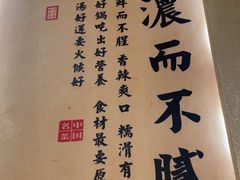 濃而不膩
鮮而不腥 香辣爽口 糯滑有
好鍋吃出好營養 食材最要原
湯好還要火候好
中国名菜